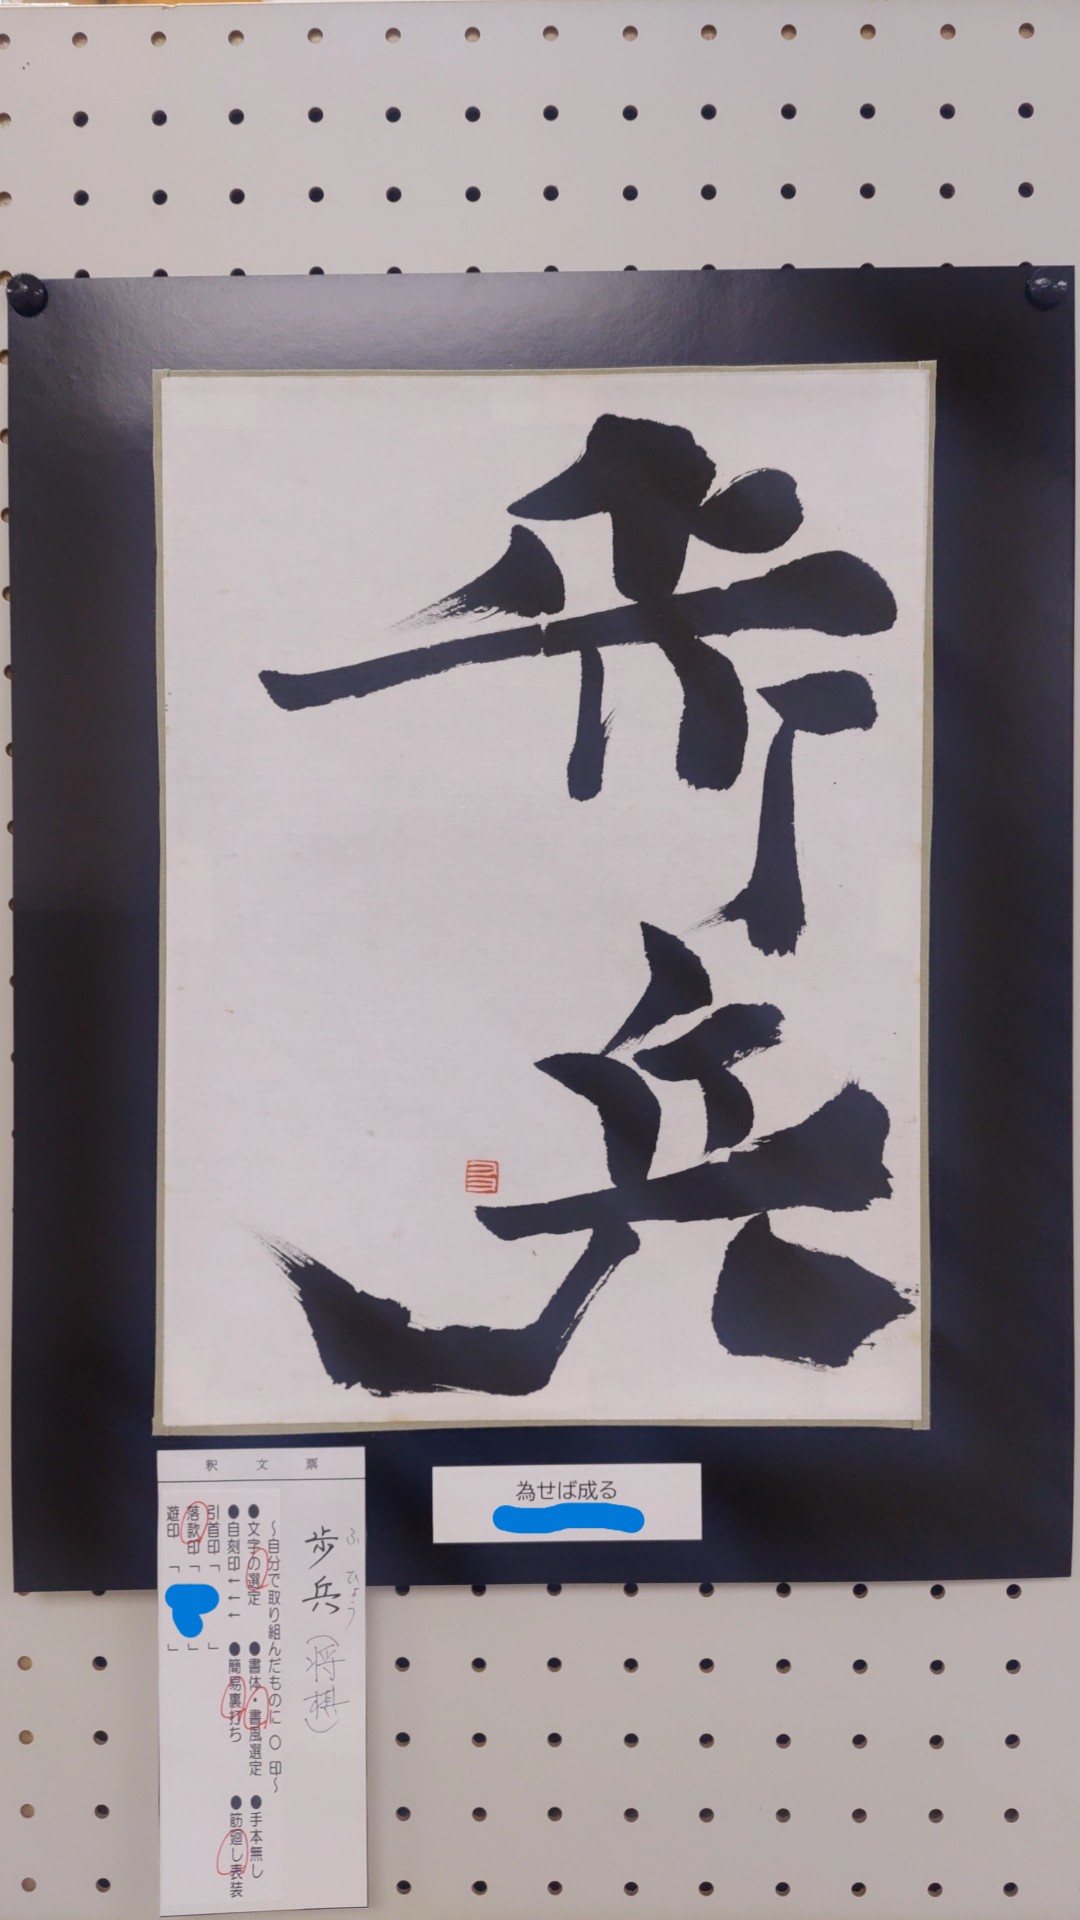 歩兵
為せば成る
釈文票
歩兵(将棋)
ふひょう
～自分で取り組んだものに 〇 印～
●文字の選定 ●書体・書風選定 ●手本無し
●自刻印←←← ●簡易裏打ち ●筋廻し表装
引首印「 」
落款印「 」
遊印「 」